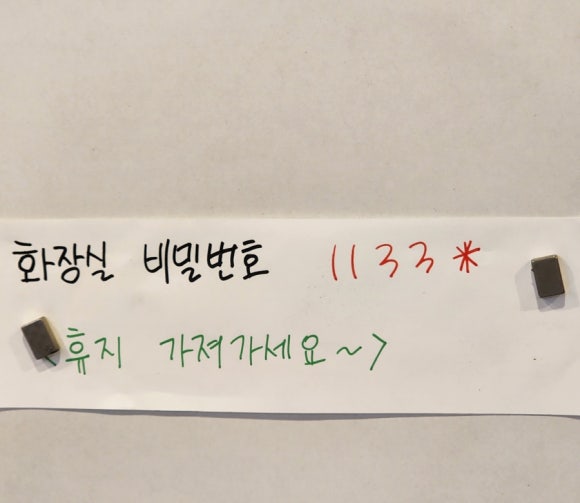 화장실 비밀번호 1133*
<휴지 가져가세요~>